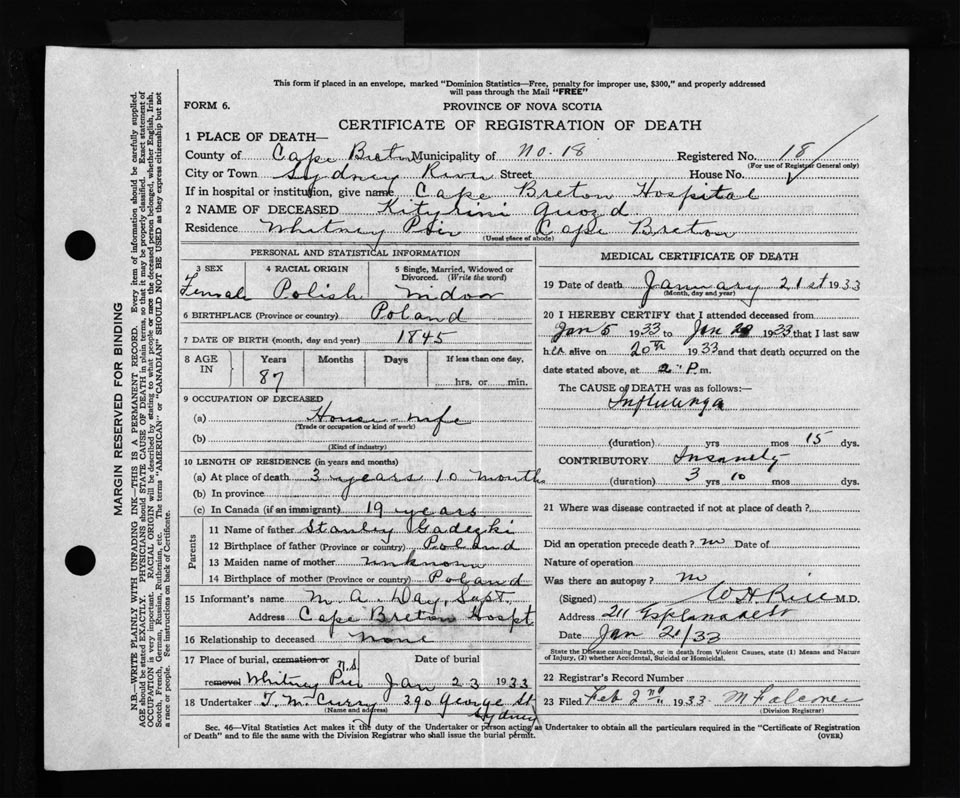 This form if placed in an envelope, marked "Dominion Statistics—Free, penalty for improper use, $300," and properly addressed
will pass through the Mail "FREE"
FORM 6.
PROVINCE OF NOVA SCOTIA
CERTIFICATE OF REGISTRATION OF DEATH
1 PLACE OF DEATH—
County of Cape Breton Municipality of No. 18 Registered No. 18
(For use of Registrar General only)
City or Town Sydney River Street House No.
If in hospital or institution, give name Cape Breton Hospital
2 NAME OF DECEASED Kityrini Guozd
Residence Whitney Pier Cape Breton
(Usual place of abode)
PERSONAL AND STATISTICAL INFORMATION
3 SEX
Female
4 RACIAL ORIGIN
Polish
5 Single, Married, Widowed or
Divorced. (Write the word)
6 BIRTHPLACE (Province or country) Poland
7 DATE OF BIRTH (month, day and year) 1845
8 AGE IN
Years Months Days If less than one day,
87 hrs. or min.
9 OCCUPATION OF DECEASED
(a) House wife
(Trade or occupation or kind of work)
(b)
(Kind of industry)
10 LENGTH OF RESIDENCE (in years and months)
(a) At place of death 3 years 10 months
(b) In province
(c) In Canada (if an immigrant) 19 years
Parents
11 Name of father Stanley Gadezki
12 Birthplace of father (Province or country) Poland
13 Maiden name of mother unknown
14 Birthplace of mother (Province or country) Poland
15 Informant's name M. A. Day, Supt.
Address Cape Breton Hospt
16 Relationship to deceased None
17 Place of burial, cremation or Date of burial
removal Whitney Pier N.S. Jan 23 1933
18 Undertaker T. M. Curry 390 George St.
(Name and address) Sydney
MEDICAL CERTIFICATE OF DEATH
19 Date of death January 21st 1933
(Month, day and year)
20 I HEREBY CERTIFY that I attended deceased from
Jan 5 1933 to Jan 20 1933 that I last saw
alive on 20th 1933 and that death occurred on
date stated above, at 2 P.m.
The CAUSE of DEATH was as follows:—
Influenza
(duration) yrs mos 15 dys.
CONTRIBUTORY Insanety
(duration) 3 yrs 10 mos dys.
21 Where was disease contracted if not at place of death?
Did an operation precede death? no Date of
Nature of operation
Was there an autopsy? no
(Signed) W H Rice M.D.
Address 211 Esplanade St
Date Jan 21/33
State the Disease causing Death, or in death from Violent Causes, state (1) Means and Nature
of Injury, (2) whether Accidental, Suicidal or Homicidal.
22 Registrar's Record Number
23 Filed Feb 2nd 1933 M Falconer
(Division Registrar)
Sec. 46—Vital Statistics Act makes it the duty of the Undertaker or person acting as Undertaker to obtain all the particulars required in the "Certificate of Registration
of Death" and to file the same with the Division Registrar who shall issue the burial permit.
(OVER)
MARGIN RESERVED FOR BINDING
N.B.—WRITE PLAINLY WITH UNFADING INK—THIS IS A PERMANENT RECORD. Every item of information should be carefully supplied.
AGE should be stated EXACTLY. PHYSICIANS should STATE CAUSE OF DEATH in plain terms, so that it may be properly classified. Exact statement of
OCCUPATION is very important. RACIAL ORIGIN will be described by stating to what people or race the deceased person belonged, whether English, Irish,
Scotch, French, German, Russian, Ruthenian, etc. The terms "AMERICAN" or "CANADIAN" SHOULD NOT BE USED as they express citizenship but not
a race or people. See instructions on back of Certificate.